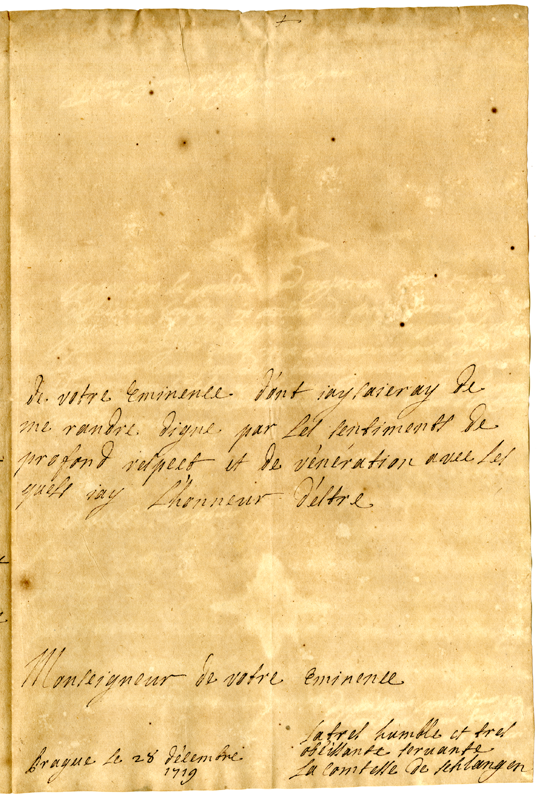 de votre Eminence dont jaysaieray de
me randre digne par les sentiments de
profond respect et de véneration avec les
quels jay l'honneur d'estre
Monseigneur de votre Eminence
la tres humble et tres
obeissante servante
Prague le 28 décembre
1719
la comtesse de schlangen